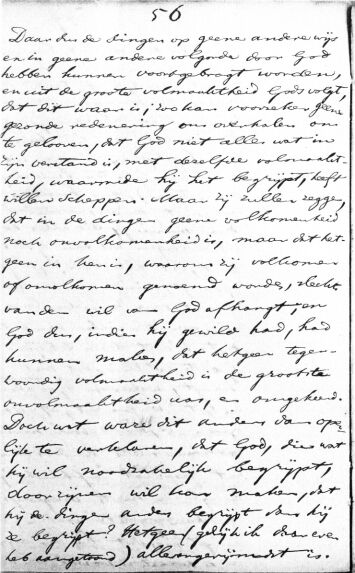 56
Daar dus de dingen op geene andere wijs
en in geene andere volgorde door God
hebben kunnen voortgebragt worden,
en uit de groote volmaaktheid Gods volgt,
dat dit waar is; zoo kan voorzeker geene
gezonde redenering ons overhalen om
te gelooven, dat God niet alles wat in
zijn verstand is, met dezelfde volmaakt-
heid, waarmede hij het begrijpt, heeft
willen scheppen. Maar zij zullen zeggen,
dat in de dingen geene volkomenheid
noch onvolkomenheid is, maar dat het-
geen in hen is, waarom zij volkomen
of onvolkomen genoemd worden, slechts
van den wil van God afhangt, en
God dus, indien hij gewild had, had
kunnen maken, dat hetgeen tegen-
woordig volmaaktheid is de grootste
onvolmaaktheid was, en omgekeerd.
Doch wat ware dit anders dan open-
lijk te verklaren, dat God, die wat
hij wil noodzakelijk begrijpt,
door zijnen wil kan maken, dat
hij de dingen anders begrijpt dan hij
ze begrijpt? Hetgeen (gelijk ik daar even
heb aangetoond) allerongerijmdst is.